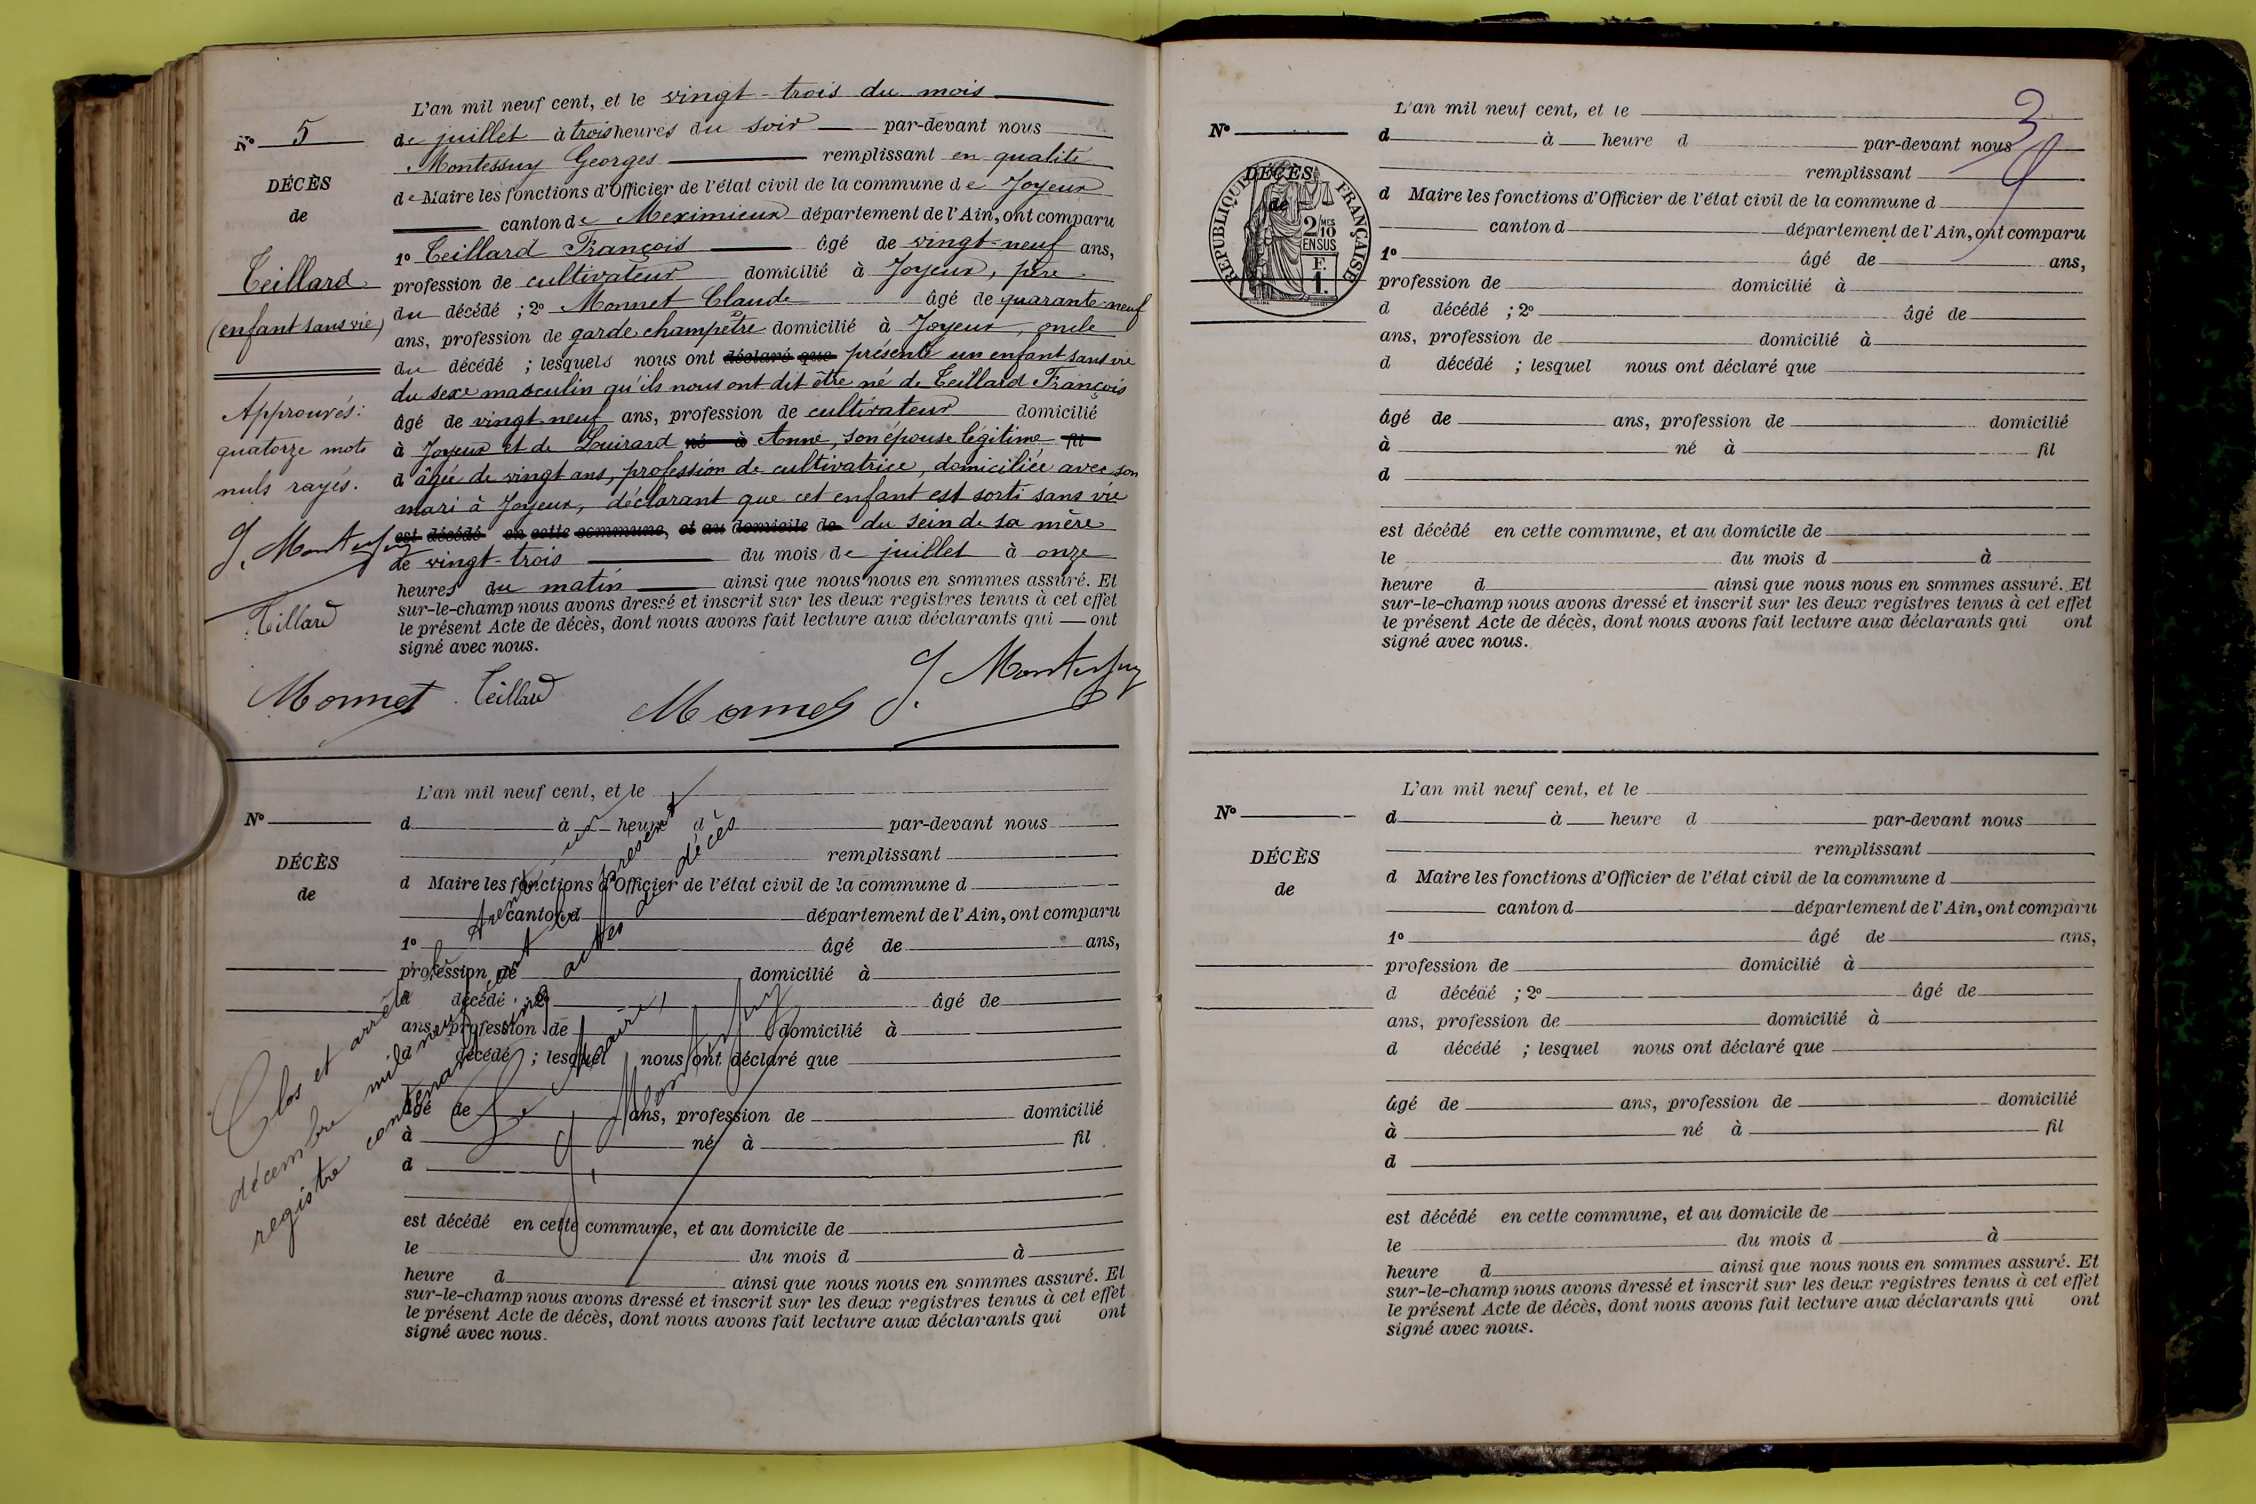 L'an mil neuf cent, et le vingt-trois du mois
N° 5
de juillet à trois heures du soir par-devant nous
Montessuy Georges remplissant en qualité
DÉCÈS
de Maire les fonctions d'Officier de l'état civil de la commune de Joyeux
de
canton de Meximieux département de l'Ain, ont comparu
1° Teillard François âgé de vingt-neuf ans,
Teillard
profession de cultivateur domicilié à Joyeux, père
du décédé ; 2° Monnet Claude âgé de quarante-neuf
(enfant sans vie)
ans, profession de garde champêtre domicilié à Joyeux, oncle
du décédé ; lesquels nous ont déclaré que présenté un enfant sans vie
du sexe masculin qu'ils nous ont dit être né de Teillard François
Approuvés:
âgé de vingt-neuf ans, profession de cultivateur domicilié
quatorze mots
à Joyeux et de Guirard né à Anne, son épouse légitime fil
nuls rayés.
d âgée de vingt ans, profession de cultivatrice, domiciliée avec son
mari à Joyeux, déclarant que cet enfant est sorti sans vie
G. Montessuy
est décédé en cette commune, et au domicile de du sein de sa mère
le vingt-trois du mois de juillet à onze
heures du matin ainsi que nous nous en sommes assuré. Et
sur-le-champ nous avons dressé et inscrit sur les deux registres tenus à cet effet
Teillard
le présent Acte de décès, dont nous avons fait lecture aux déclarants qui ont
signé avec nous.
Monnet Teillard Monnet G. Montessuy
L'an mil neuf cent, et le
N°
d à heure d par-devant nous
remplissant
DÉCÈS
d Maire les fonctions d'Officier de l'état civil de la commune d
de
canton d département de l'Ain, ont comparu
1° âgé de ans,
profession de domicilié à
d décédé ; 2° âgé de
ans, profession de domicilié à
d décédé ; lesquel nous ont déclaré que
âgé de ans, profession de domicilié
à né à fil
d
est décédé en cette commune, et au domicile de
le du mois d à
heure d ainsi que nous nous en sommes assuré. Et
sur-le-champ nous avons dressé et inscrit sur les deux registres tenus à cet effet
le présent Acte de décès, dont nous avons fait lecture aux déclarants qui ont
signé avec nous.
Clos et arrêté le trente-un
décembre mil neuf cent le présent
registre contenant cinq actes de décès
Le Maire,
G. Montessuy
3
L'an mil neuf cent, et le
N°
d à heure d par-devant nous
remplissant
DÉCÈS
d Maire les fonctions d'Officier de l'état civil de la commune d
de
RÉPUBLIQUE FRANÇAISE
2/10 MES
EN SUS
F.
1.
canton d département de l'Ain, ont comparu
1° âgé de ans,
profession de domicilié à
d décédé ; 2° âgé de
ans, profession de domicilié à
d décédé ; lesquel nous ont déclaré que
âgé de ans, profession de domicilié
à né à fil
d
est décédé en cette commune, et au domicile de
le du mois d à
heure d ainsi que nous nous en sommes assuré. Et
sur-le-champ nous avons dressé et inscrit sur les deux registres tenus à cet effet
le présent Acte de décès, dont nous avons fait lecture aux déclarants qui ont
signé avec nous.
L'an mil neuf cent, et le
N°
d à heure d par-devant nous
remplissant
DÉCÈS
d Maire les fonctions d'Officier de l'état civil de la commune d
de
canton d département de l'Ain, ont comparu
1° âgé de ans,
profession de domicilié à
d décédé ; 2° âgé de
ans, profession de domicilié à
d décédé ; lesquel nous ont déclaré que
âgé de ans, profession de domicilié
à né à fil
d
est décédé en cette commune, et au domicile de
le du mois d à
heure d ainsi que nous nous en sommes assuré. Et
sur-le-champ nous avons dressé et inscrit sur les deux registres tenus à cet effet
le présent Acte de décès, dont nous avons fait lecture aux déclarants qui ont
signé avec nous.